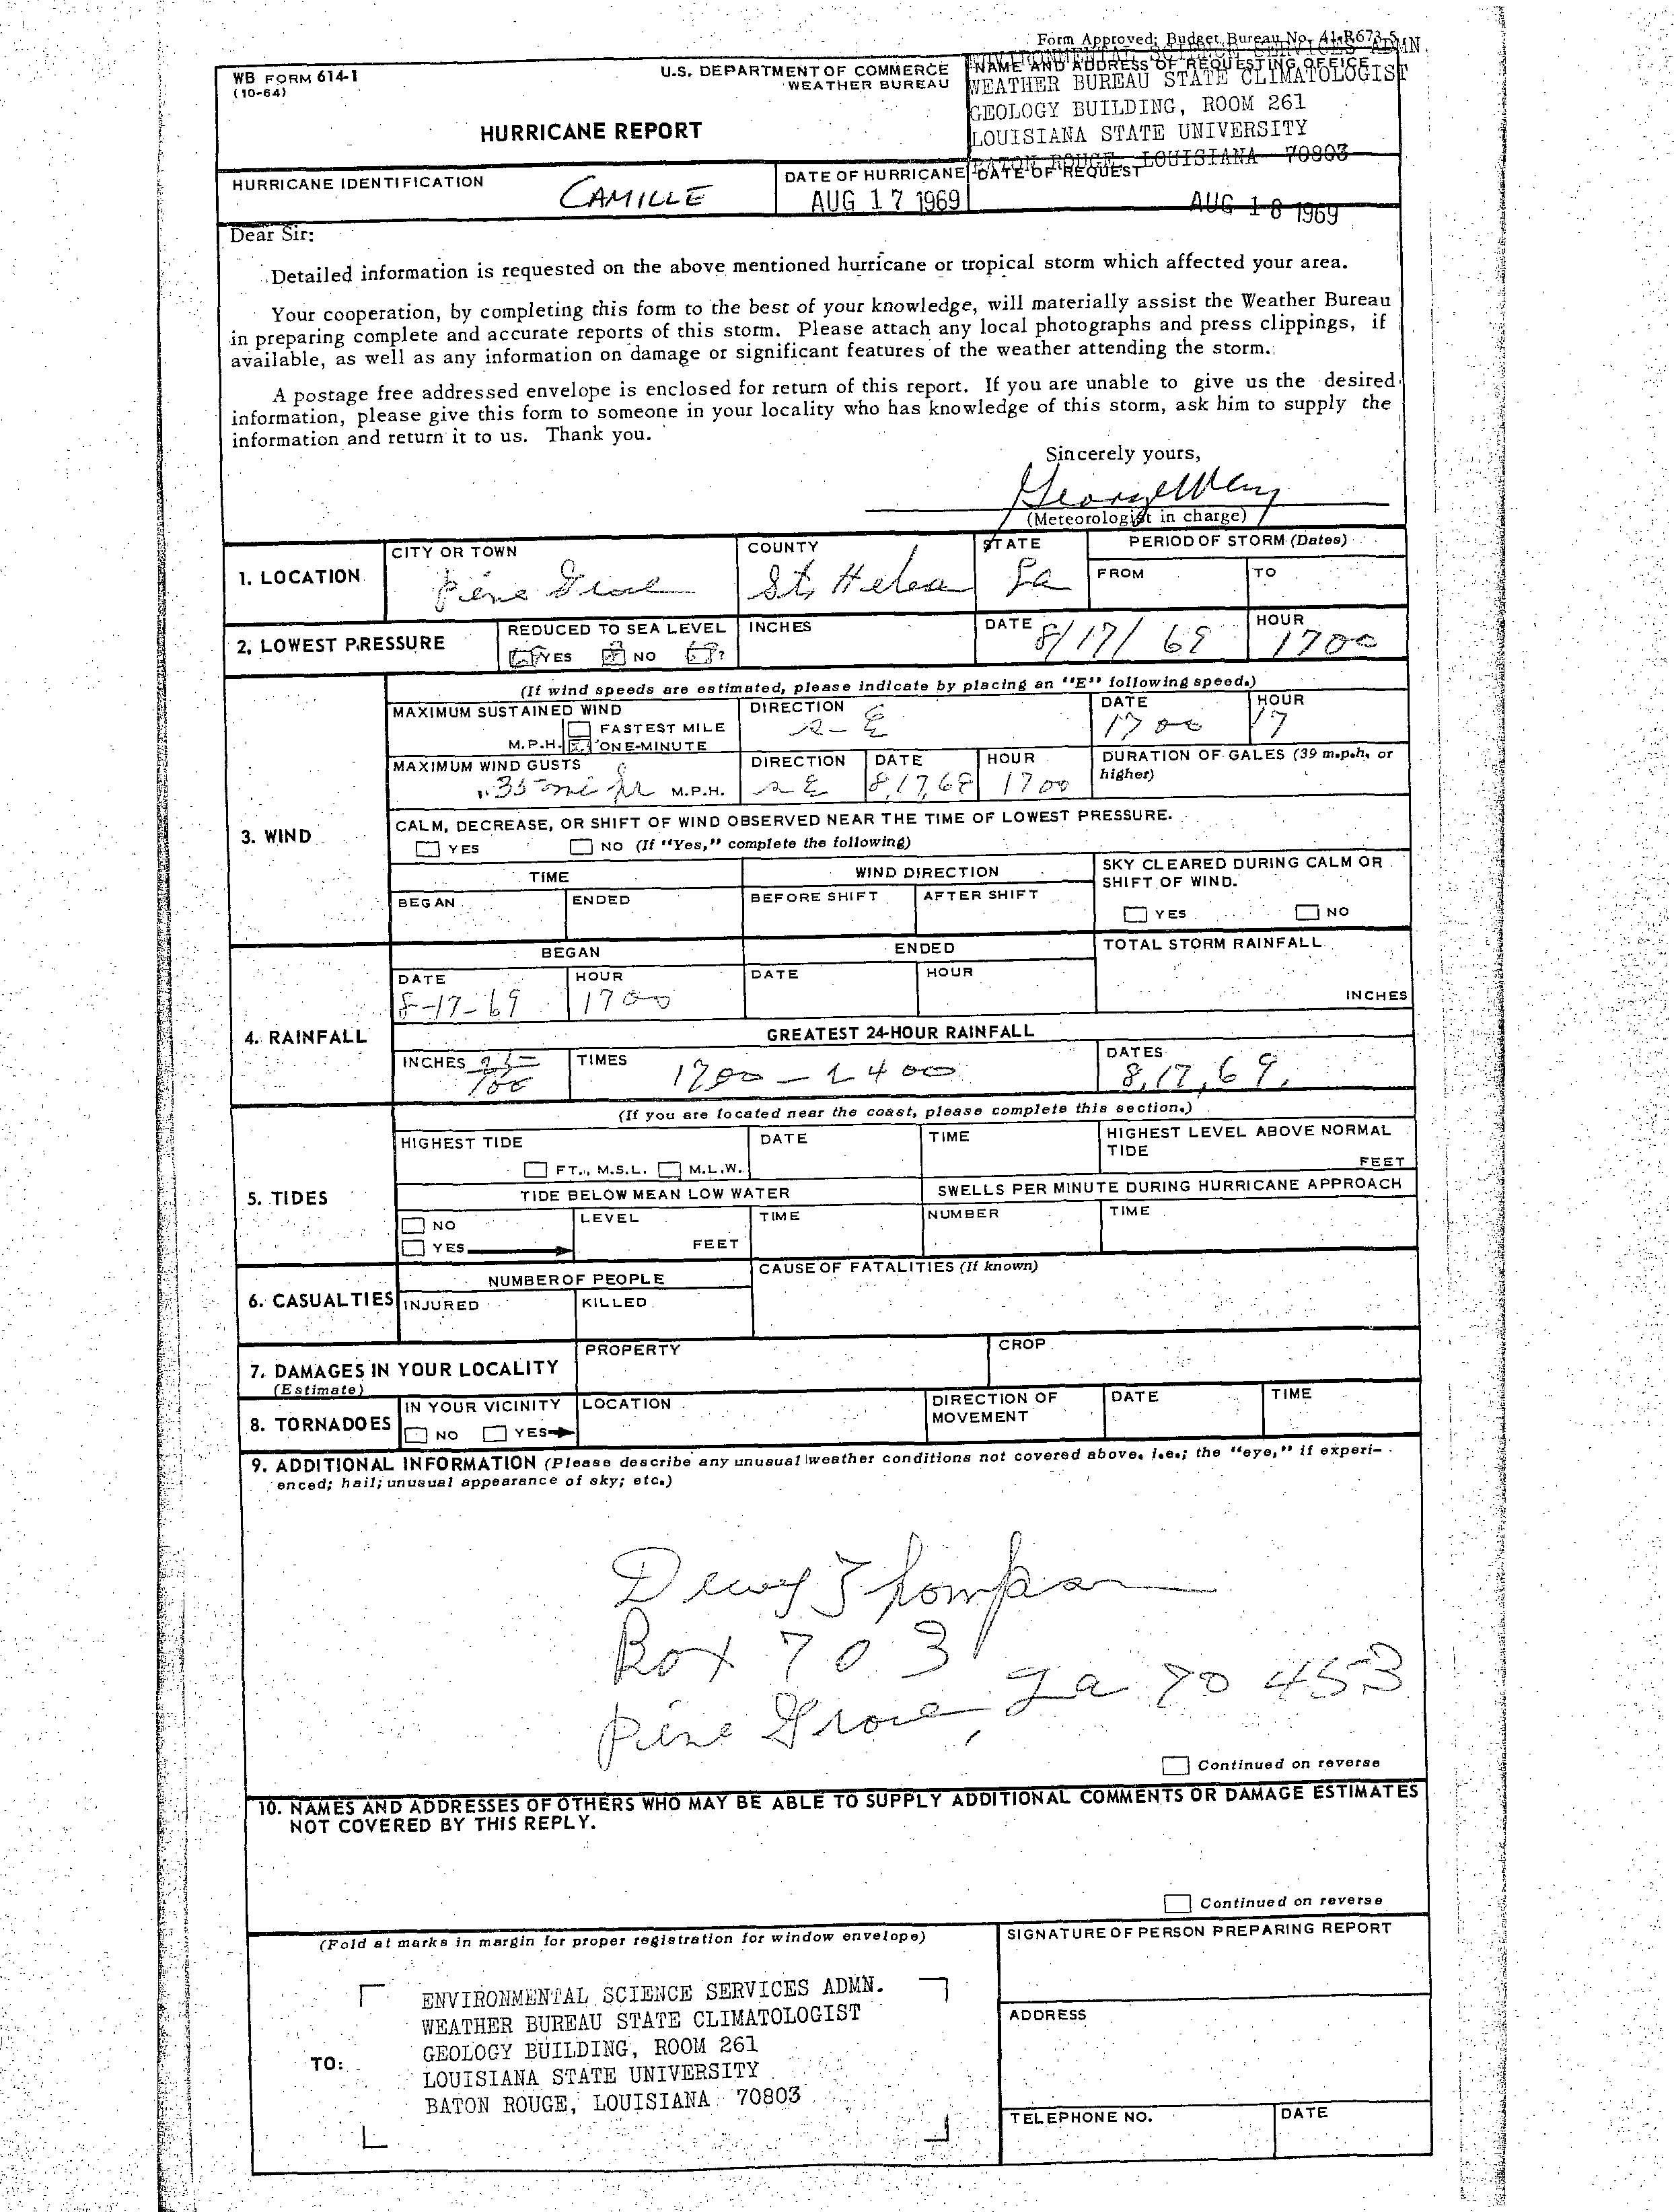 Form Approved; Budget Bureau No. 41-R673.5
WB FORM 614-1
(10-64)
U.S. DEPARTMENT OF COMMERCE
WEATHER BUREAU
HURRICANE REPORT
ENVIRONMENTAL SCIENCE SERVICES ADMN.
NAME AND ADDRESS OF REQUESTING OFFICE
WEATHER BUREAU STATE CLIMATOLOGIST
GEOLOGY BUILDING, ROOM 261
LOUISIANA STATE UNIVERSITY
BATON ROUGE, LOUISIANA 70803
HURRICANE IDENTIFICATION
CAMILLE
DATE OF HURRICANE
AUG 17 1969
DATE OF REQUEST
AUG 18 1969
Dear Sir:
Detailed information is requested on the above mentioned hurricane or tropical storm which affected your area.
Your cooperation, by completing this form to the best of your knowledge, will materially assist the Weather Bureau
in preparing complete and accurate reports of this storm. Please attach any local photographs and press clippings, if
available, as well as any information on damage or significant features of the weather attending the storm.
A postage free addressed envelope is enclosed for return of this report. If you are unable to give us the desired
information, please give this form to someone in your locality who has knowledge of this storm, ask him to supply the
information and return it to us. Thank you.
Sincerely yours,
(Meteorologist in charge)
1. LOCATION
CITY OR TOWN
Pine Grove
COUNTY
St. Helena
STATE
La
PERIOD OF STORM (Dates)
FROM
TO
2. LOWEST PRESSURE
REDUCED TO SEA LEVEL
YES NO ?
INCHES
DATE 8/17/69
HOUR
1700
3. WIND
(If wind speeds are estimated, please indicate by placing an "E" following speed.)
MAXIMUM SUSTAINED WIND
FASTEST MILE
M.P.H. ONE-MINUTE
DIRECTION
n-E
DATE
1700
HOUR
17
MAXIMUM WIND GUSTS
35 mi hr M.P.H.
DIRECTION
n E
DATE
8,17,69
HOUR
1700
DURATION OF GALES (39 m.p.h. or
higher)
CALM, DECREASE, OR SHIFT OF WIND OBSERVED NEAR THE TIME OF LOWEST PRESSURE.
YES NO (If "Yes," complete the following)
TIME
WIND DIRECTION
SKY CLEARED DURING CALM OR
SHIFT OF WIND.
BEGAN
ENDED
BEFORE SHIFT
AFTER SHIFT
YES NO
4. RAINFALL
BEGAN
ENDED
TOTAL STORM RAINFALL
DATE
8-17-69
HOUR
1700
DATE
HOUR
INCHES
GREATEST 24-HOUR RAINFALL
INCHES 25
100
TIMES
1700 - 2400
DATES
8,17,69.
5. TIDES
(If you are located near the coast, please complete this section.)
HIGHEST TIDE
FT., M.S.L. M.L.W.
DATE
TIME
HIGHEST LEVEL ABOVE NORMAL
TIDE
FEET
TIDE BELOW MEAN LOW WATER
SWELLS PER MINUTE DURING HURRICANE APPROACH
NO
YES
LEVEL
FEET
TIME
NUMBER
TIME
6. CASUALTIES
NUMBER OF PEOPLE
INJURED
KILLED
CAUSE OF FATALITIES (If known)
7. DAMAGES IN YOUR LOCALITY
(Estimate)
PROPERTY
CROP
8. TORNADOES
IN YOUR VICINITY
NO YES
LOCATION
DIRECTION OF
MOVEMENT
DATE
TIME
9. ADDITIONAL INFORMATION (Please describe any unusual weather conditions not covered above. i.e.; the "eye," if experi-
enced; hail; unusual appearance of sky; etc.)
Dewy Thompson
Box 703
Pine Grove, La 70453
Continued on reverse
10. NAMES AND ADDRESSES OF OTHERS WHO MAY BE ABLE TO SUPPLY ADDITIONAL COMMENTS OR DAMAGE ESTIMATES
NOT COVERED BY THIS REPLY.
Continued on reverse
(Fold at marks in margin for proper registration for window envelope)
TO:
ENVIRONMENTAL SCIENCE SERVICES ADMN.
WEATHER BUREAU STATE CLIMATOLOGIST
GEOLOGY BUILDING, ROOM 261
LOUISIANA STATE UNIVERSITY
BATON ROUGE, LOUISIANA 70803
SIGNATURE OF PERSON PREPARING REPORT
ADDRESS
TELEPHONE NO.
DATE